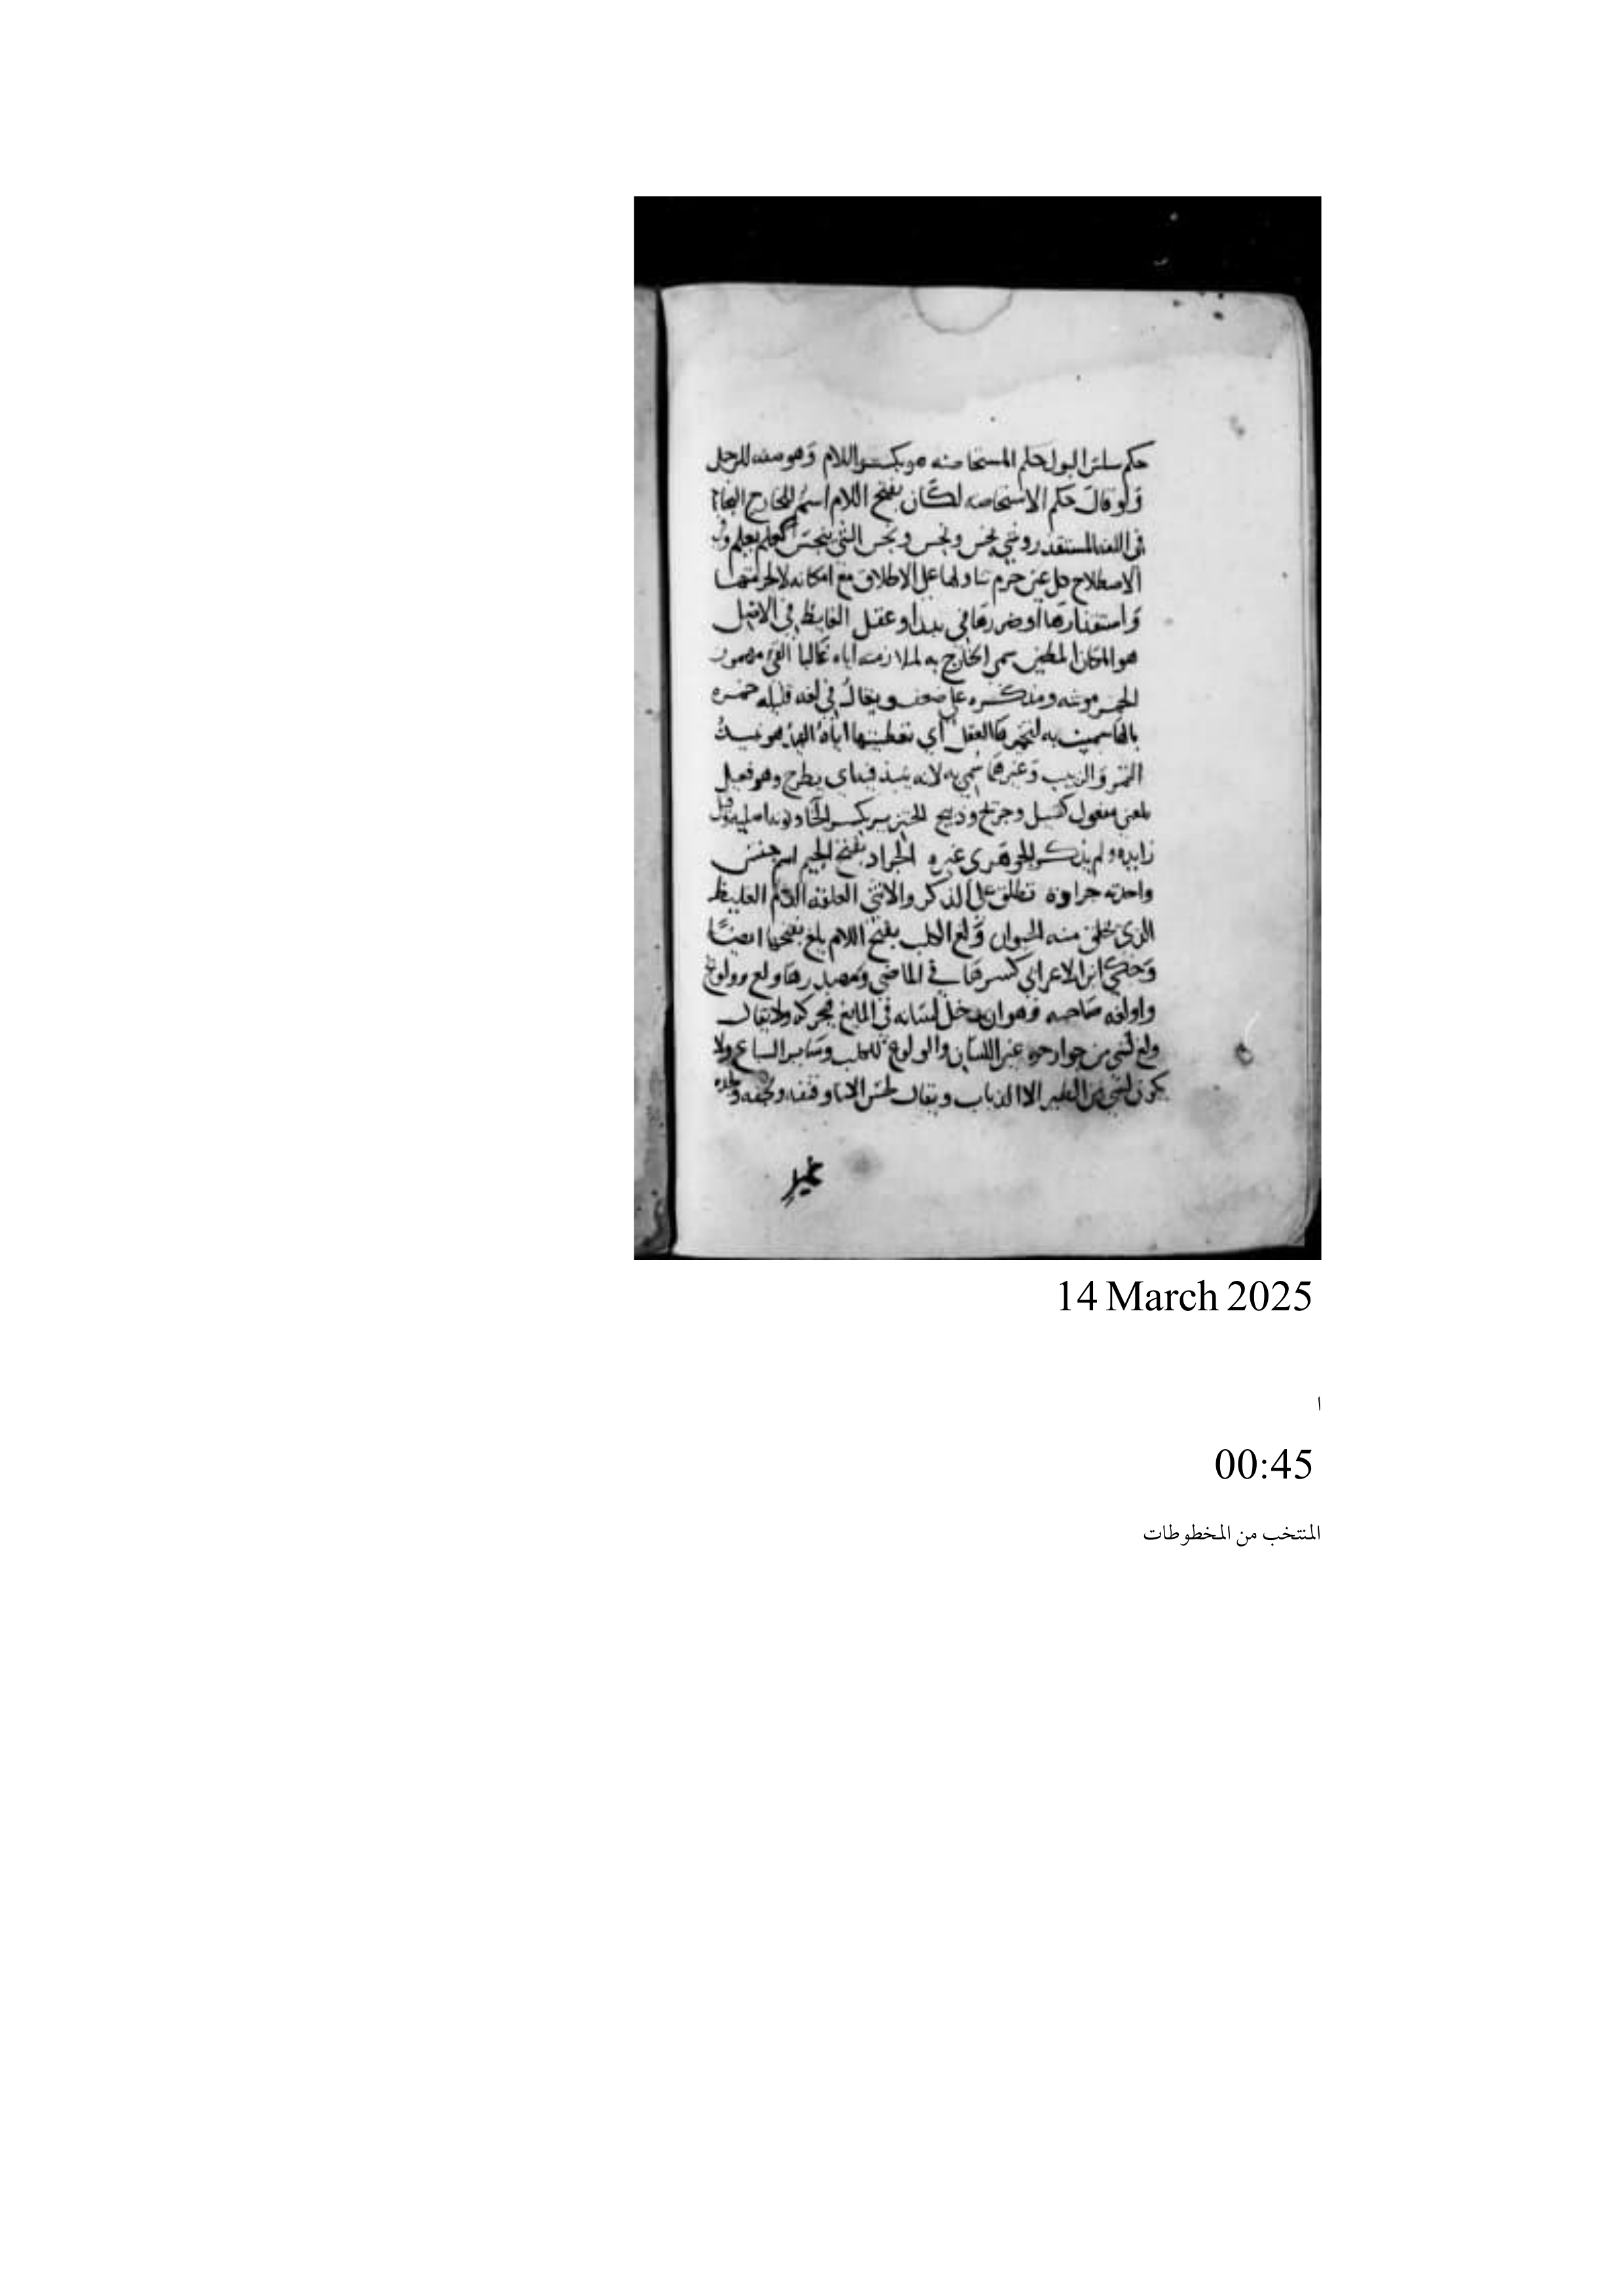 حكم سلس البول حكم المستحاضه هو بكسر اللام وهو صفه للرجل
ولو قال حكم الاستحاضه لكان بفتح اللام اسم للخارج النجاسة
في اللغه المستقذر وشي نجس ونجس ونجس الشي ينجس كعلم يعلم وفي
الاصطلاح كل عين حرم تناولها على الاطلاق مع امكانه لا لحرمتها
واستقذارها او ضررها في بدن او عقل الغايط في الاصل
هو المكان المطمئن سمي الخارج به لملازمته اياه غالبا القيء مهموز
الخمر مونثه ومذكره على ضعف ويقال في لغه قليله خمره
بالها سميت به لتخميرها العقل اي تغطيتها اياه النبيذ هو نبيذ
التمر والزبيب وغيرهما سمي به لانه ينبذ فيه اي يطرح وهو فعيل
بمعنى مفعول كقتيل وجريح وذبيح الخنزير بكسر الخا ونونه اصليه وقيل
زايده ولم يذكر الجوهري غيره الجراد بفتح الجيم اسم جنس
واحدته جراده تطلق على الذكر والانثي العلقه الدم الغليظ
الذي يخلق منه الحيوان ولغ الكلب بفتح اللام يلغ بفتحها ايضا
وحكي ابن الاعرابي كسرها في الماضي ومصدرها ولغ وولوغ
واولغه صاحبه وهو ان يدخل لسانه في المايع فيحركه ولا يقال
ولغ لشي من جوارحه غير اللسان والولوغ للكلب وساير السباع ولا
يكون لشي من الطير الا الذباب ويقال لحس الانا و
14 March 2025
ا
00:45
المنتخب من المخطوطات